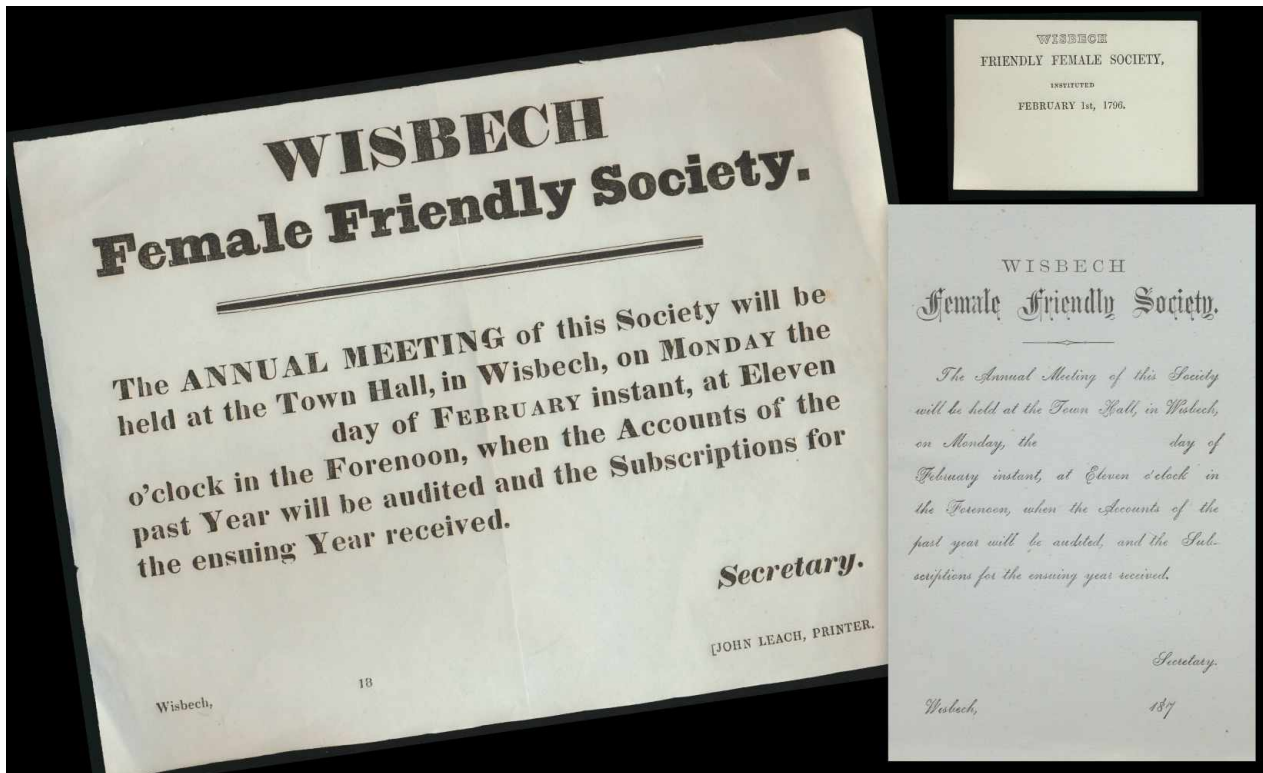 WISBECH
Female Friendly Society.
The ANNUAL MEETING of this Society will be
held at the Town Hall, in Wisbech, on MONDAY the
day of FEBRUARY instant, at Eleven
o'clock in the Forenoon, when the Accounts of the
past Year will be audited and the Subscriptions for
the ensuing Year received.
Secretary.
[JOHN LEACH, PRINTER.
Wisbech, 18
WISBECH
FRIENDLY FEMALE SOCIETY,
INSTITUTED
FEBRUARY 1st, 1796.
WISBECH
Female Friendly Society.
The Annual Meeting of this Society
will be held at the Town Hall, in Wisbech,
on Monday, the day of
February instant, at Eleven o'clock in
the Forenoon, when the Accounts of the
past year will be audited, and the Sub-
scriptions for the ensuing year received.
Secretary.
Wisbech, 187